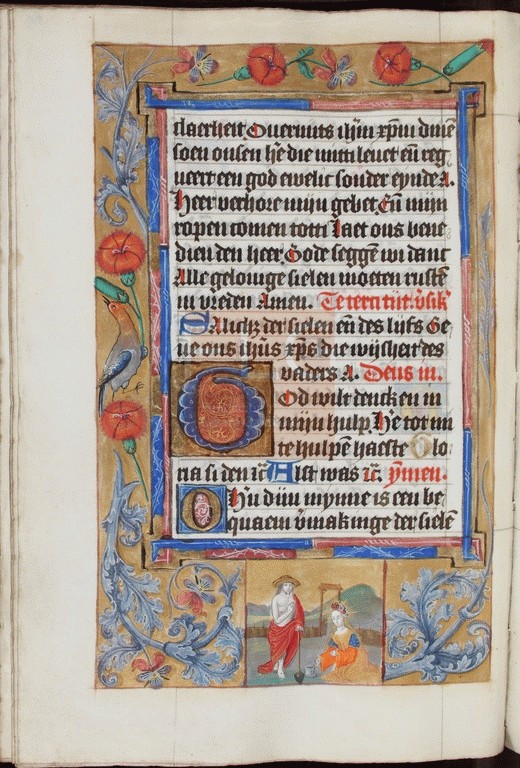 claerheit Ouermits ihm̄ xpm̄ dinē
soen onsen hr̄e die mitti leuet en̄ reg
neert een god ewelic sonder eynde A.
Heer verhore mijn gebet. En̄ mijn
ropen comen totti Laet ons bene
dien den heer. Gode seggē wi danc
Alle gelouige sielen moeten rustē
in vreden Amen. Te terci tijt v̄sik̄
Salich3 der sielen en̄ des lijfs Ge
ue ons ihūs xp̄s die wijsheit des
vaders A. Deus in.
God wilt dencken in
mijn hulp He tot mi
te hulpē haeste Glo
ria si den ic̄ Alst was ic̄. ymen.
O hū dijn mynne is een be
quaem v̄makinge der sielē